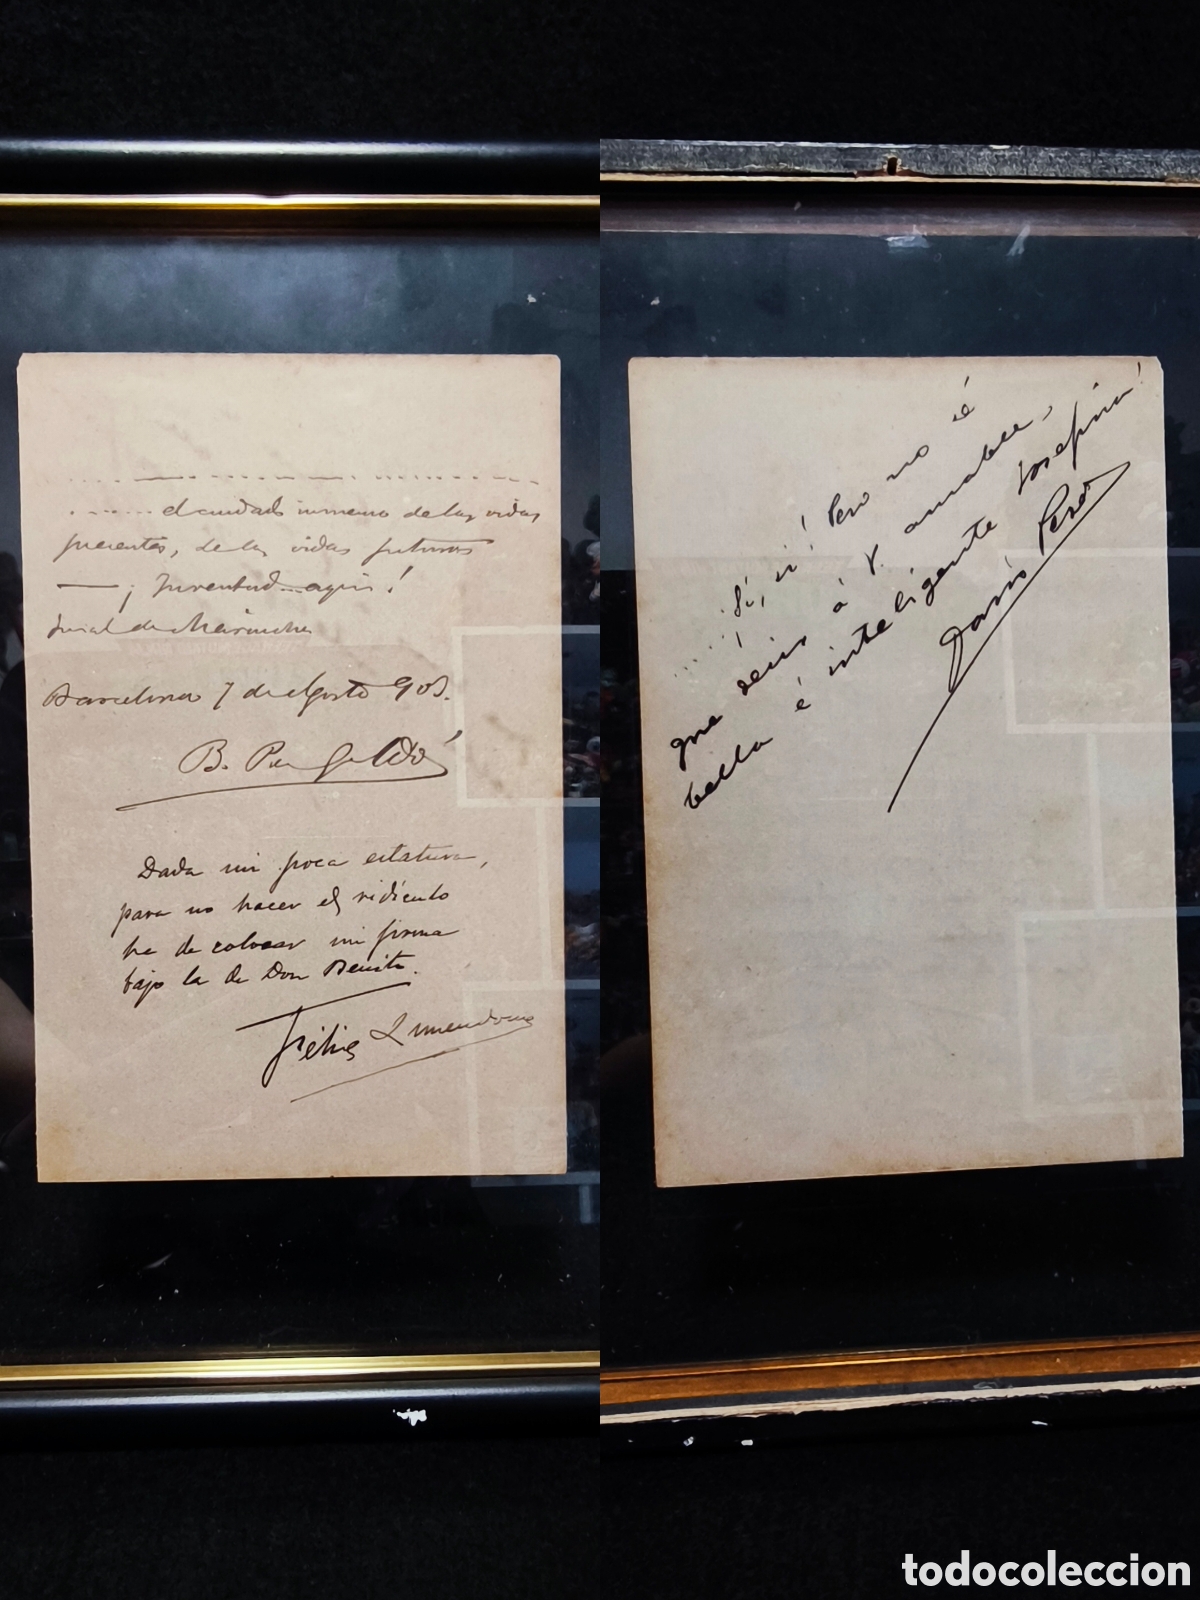 ...... el cuidado inmenso de las vidas
presentes, de las vidas futuras
— ¡ Juventud... aquí !
Final de Mariucha
Barcelona 7 de Agosto 903.
B. Perez Galdós
Dada mi poca estatura,
para no hacer el ridículo
he de colocar mi firma
bajo la de Don Benito.
Félix Limendoux
..... ¡ Sí, sí ! Pero no é
que decir á V. amable,
bella é inteligente Josefina!
Darío Pérez
todocoleccion